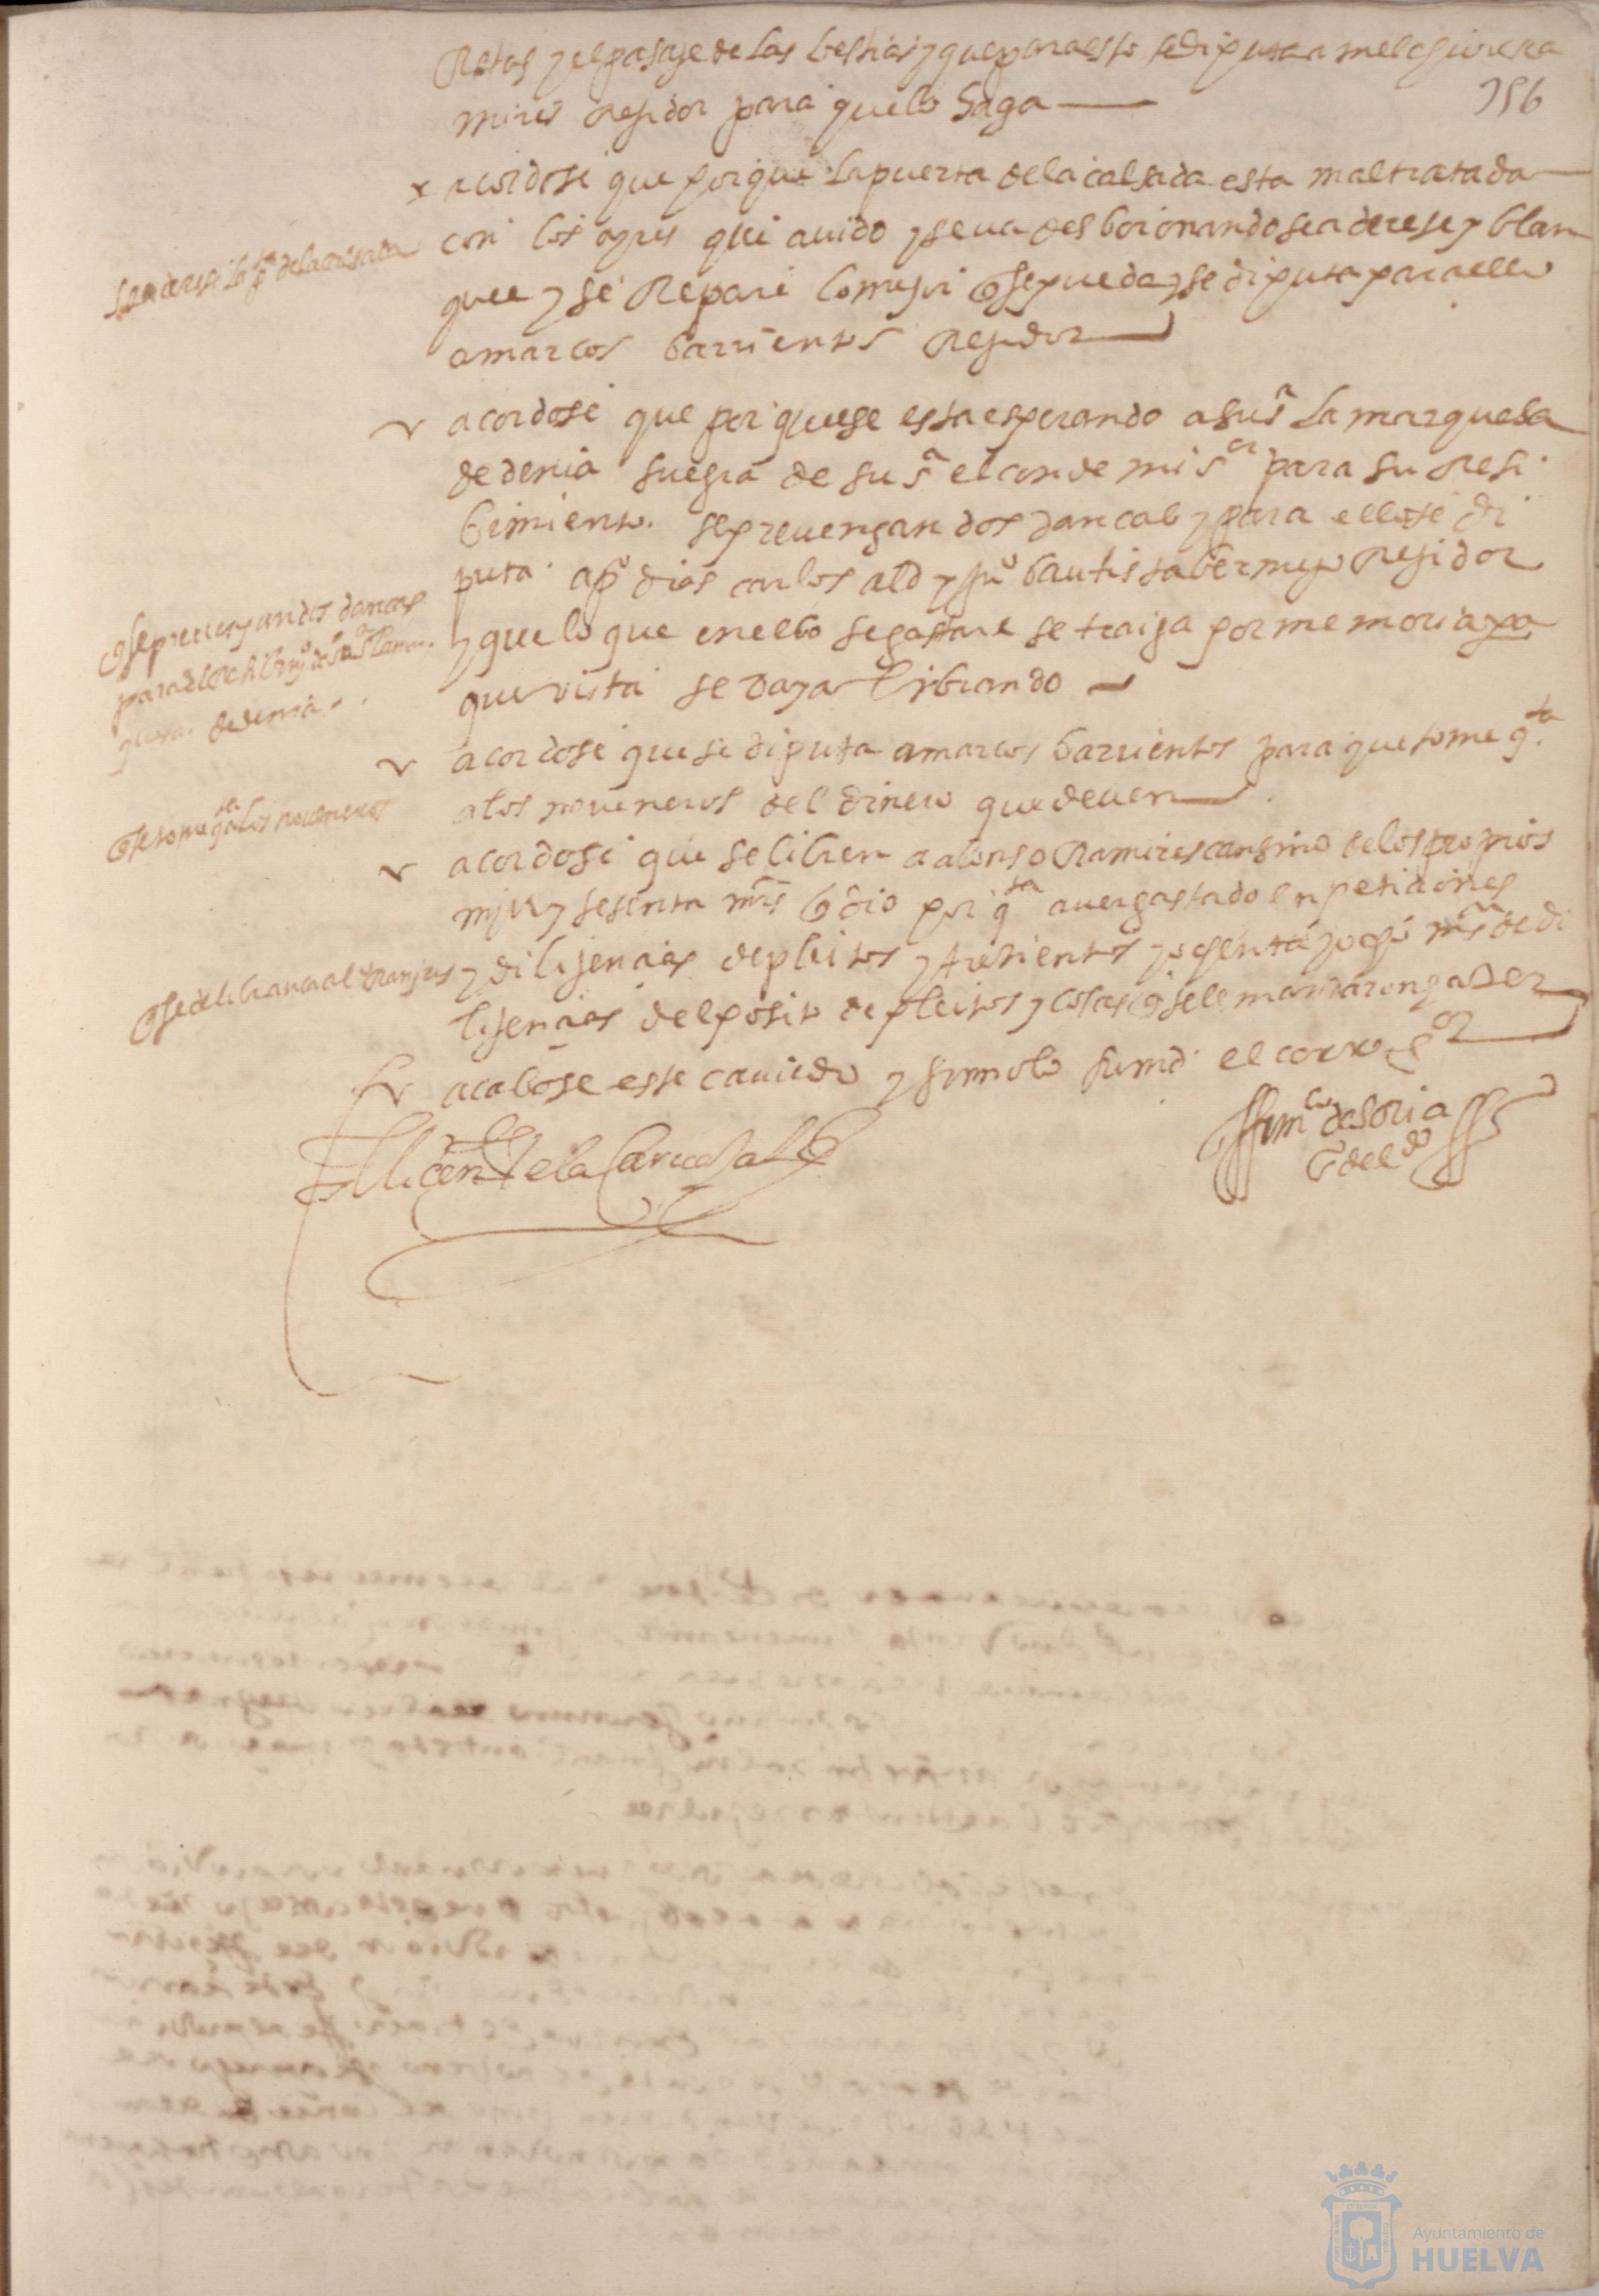 Rotas y el pasaje de las bestias y que para esto se diputa a melchior ra
mires regidor para que lo haga
756
acordose que porque la puerta de la calsada esta maltratada
con los ayres que auido y se ua desboronando se aderese y blan
quee y se Repare lo mejor q se pueda y se diputa para ello
a marcos barrientos regidor
Se aderese la pta de la calsada
acordose que por que se esta esperando a su sa la marquesa
de denia suegra de su sa el conde mi sor para su resi
bimiento se preuengan dos dancas y para ello se di
puta a po dias carlos ald y juo bautista bermejo regidor
y que lo que en ello se gastare se traiga por memoria pa
que vista se vaya librando
q se preuengan dos dancas
para el resibimyo de su sa la mar
quesa de denia
acordose que se diputa a marcos barrientos para que tome qta
a los noueneros del dinero que deuen
q se tome qta a los noueneros
acordose que se libren a alonso Ramires cansino de los propios
mill y sesenta mrs q dio por qta auer gastado en peticiones
y dilijencias de pleitos y mrs de di
lijencias del posito de pleitos y cosas q se le mandaron haser
acabose este cauildo y firmolo el corregor
de soria